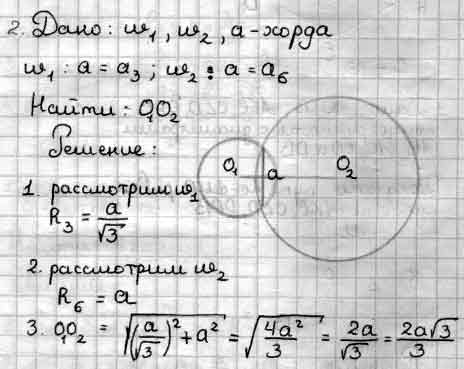 2. Дано: w₁, w₂, a-хорда
w₁ : a = a₃ ; w₂ : a = a₆
Найти: O₁O₂
Решение:
O₁ a O₂
1. рассмотрим w₁
R₃ = a/√3
2. рассмотрим w₂
R₆ = a
3. O₁O₂ = √((a/√3)² + a²) = √(4a²/3) = 2a/√3 = 2a√3/3